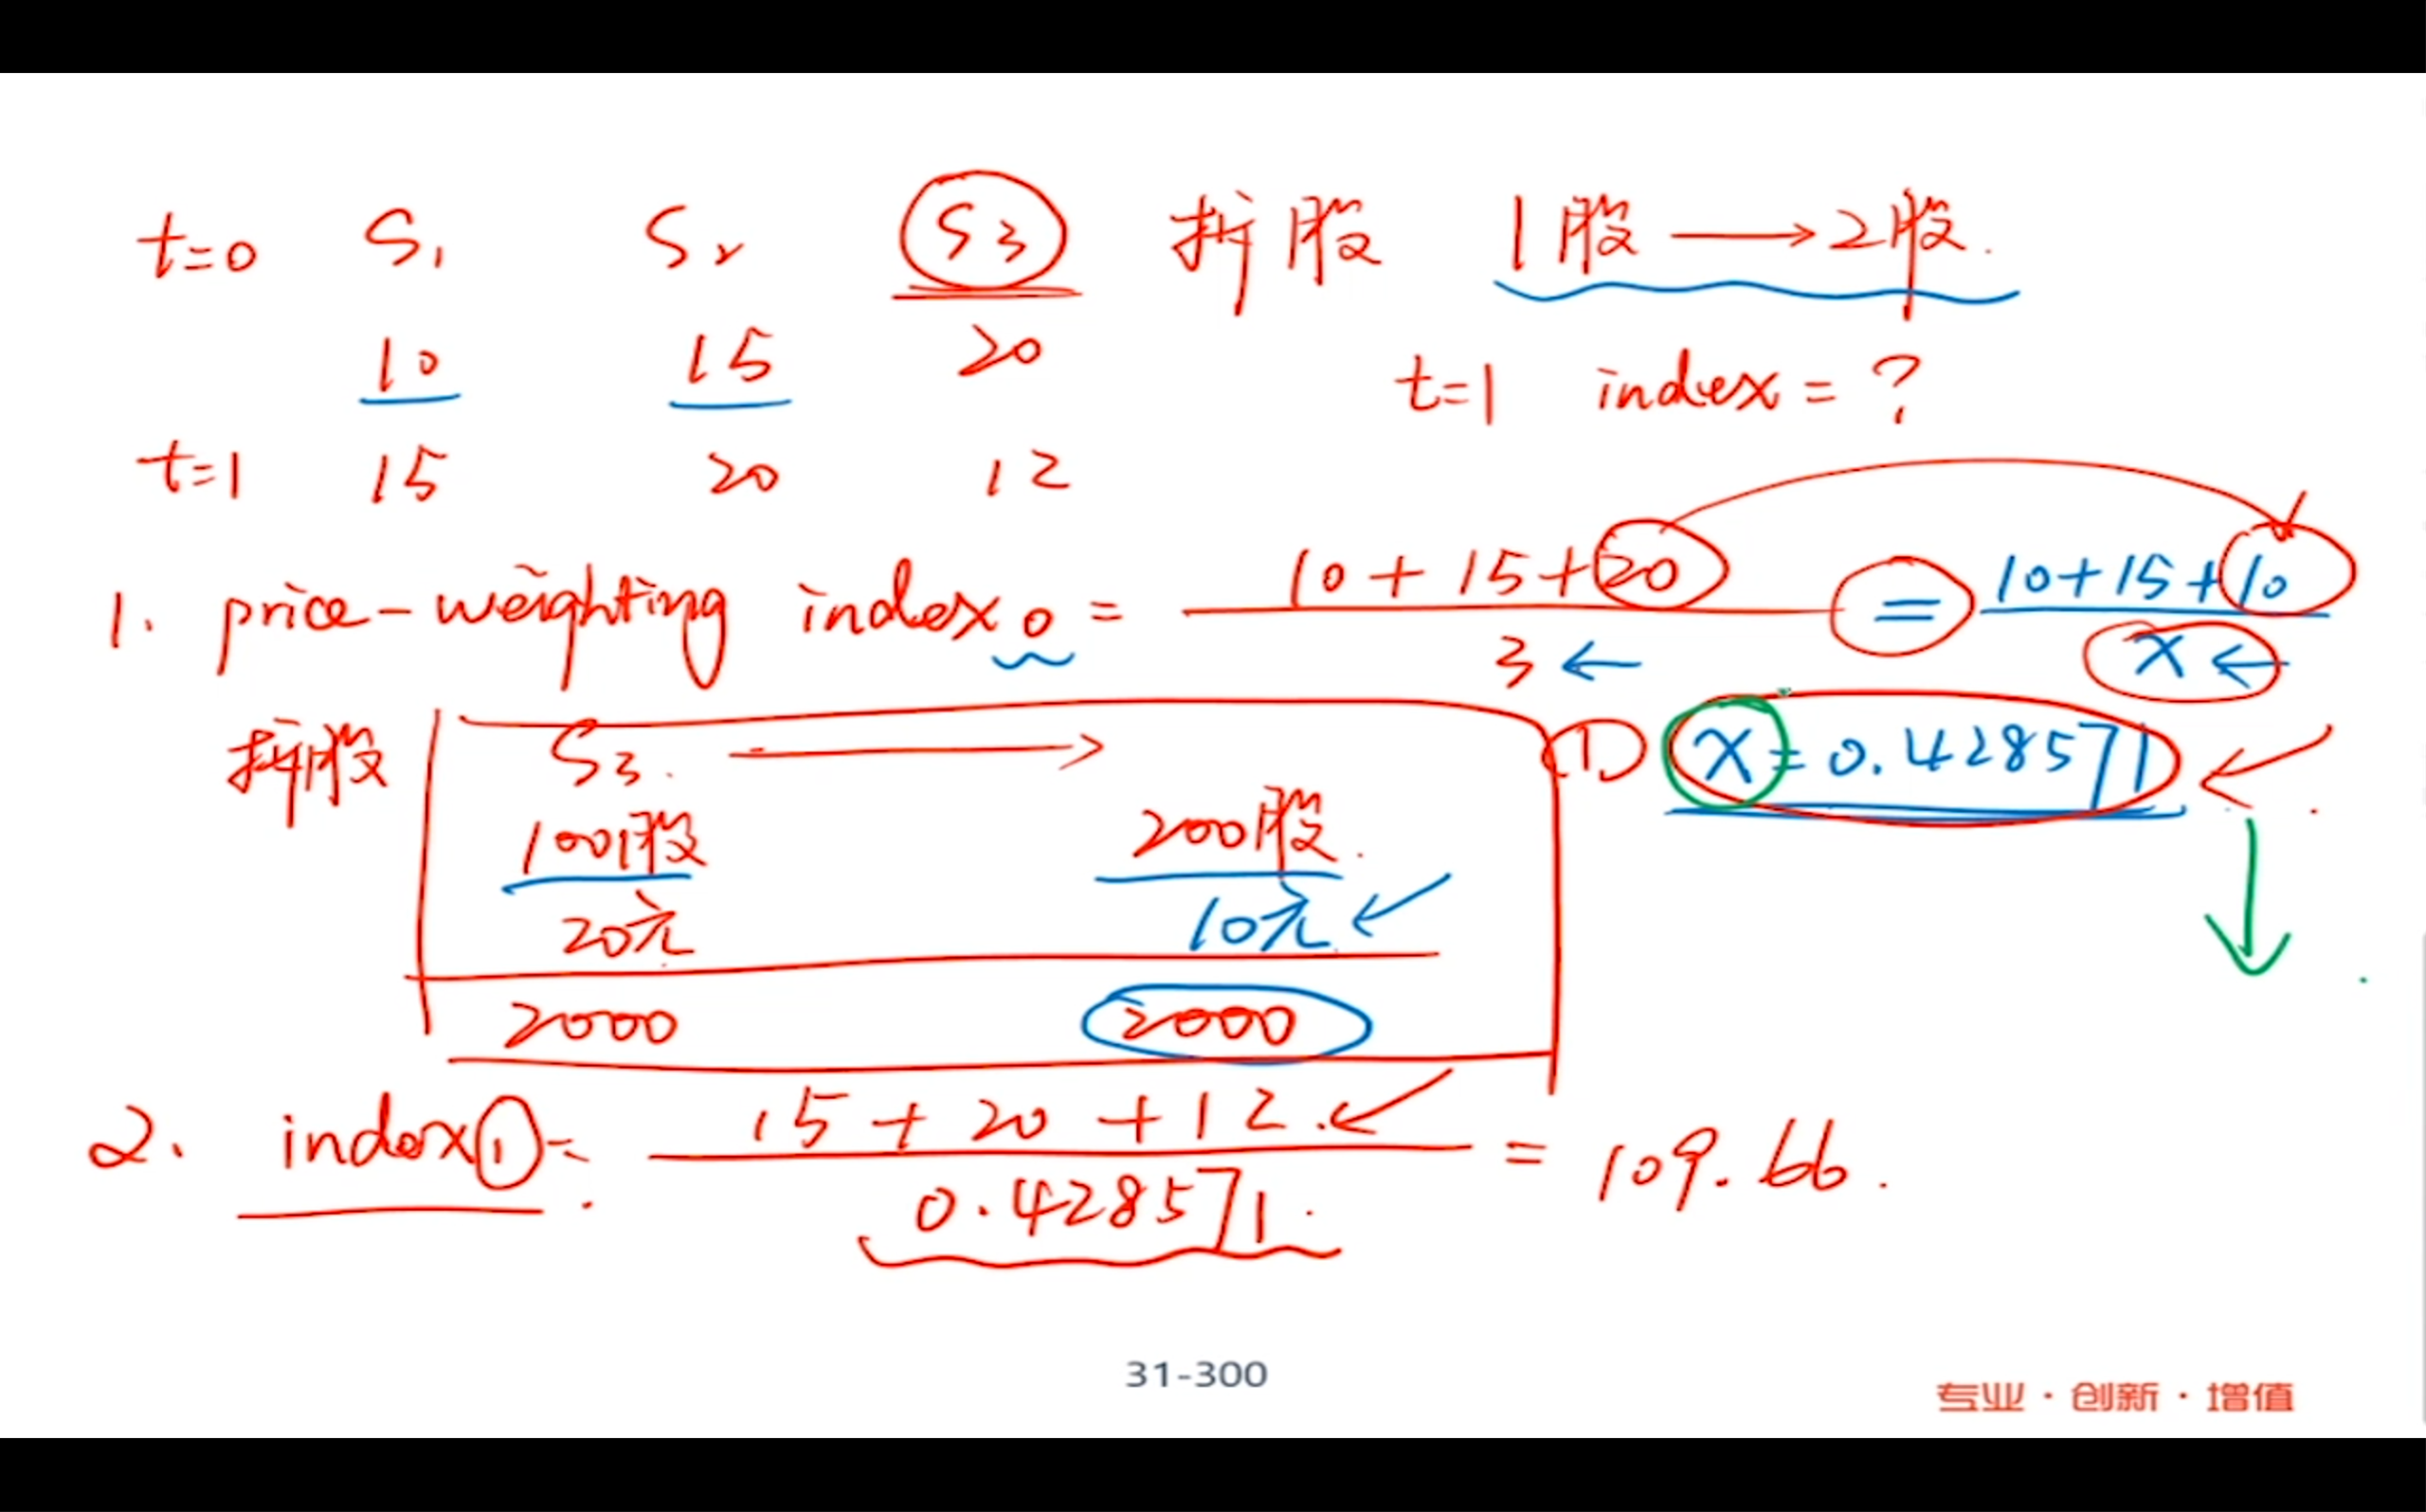 t=0 S₁ S₂ S₃ 拆股 1股 → 2股.
10 15 20
t=1 index = ?
t=1 15 20 12
1. price-weighting index₀ = (10 + 15 + 20) / 3 ← = (10 + 15 + 10) / x ←
拆股 S₃. → ① x = 0.428571
100股 200股.
20元 10元
2000 2000
2. index① = (15 + 20 + 12.) / 0.428571. = 109.66.
31-300
专业·创新·增值